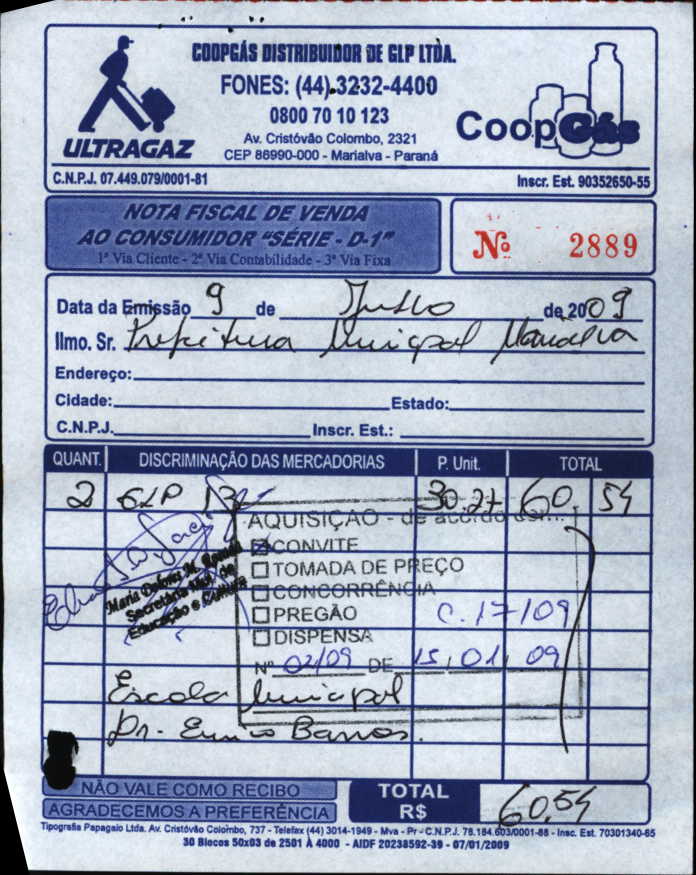 COOPGÁS DISTRIBUIDOR DE GLP LTDA.
FONES: (44) 3232-4400
0800 70 10 123
Av. Cristóvão Colombo, 2321
CEP 86990-000 - Marialva - Paraná
ULTRAGAZ
CoopGás
C.N.P.J. 07.449.079/0001-81
Inscr. Est. 90352650-55
NOTA FISCAL DE VENDA
AO CONSUMIDOR “SÉRIE - D-1”
1ª Via Cliente - 2ª Via Contabilidade - 3ª Via Fixa
Nº 2889
Data da Emissão 9 de de 2009
Ilmo. Sr. Prefeitura Municipal Marialva
Endereço:
Cidade: Estado:
C.N.P.J. Inscr. Est.:
QUANT. DISCRIMINAÇÃO DAS MERCADORIAS P. Unit. TOTAL
2 GLP 13 30.27 60.54
AQUISIÇÃO - de acordo
CONVITE
TOMADA DE PREÇO
CONCORRÊNCIA
PREGÃO C.17/09
DISPENSA
Nº 02/09 DE 15/01/09
Maria Dolores M.
Secretária Mun. de
Educação e Cultura
Escola Municipal
Dr. Barros.
NÃO VALE COMO RECIBO
AGRADECEMOS A PREFERÊNCIA
TOTAL R$ 60,54
Tipografia Papagaio Ltda. Av. Cristóvão Colombo, 737 - Telefax (44) 3014-1949 - Mva - Pr - C.N.P.J. 76.184.603/0001-88 - Insc. Est. 70301340-65
30 Blocos 50x03 de 2501 À 4000 - AIDF 20238592-39 - 07/01/2009